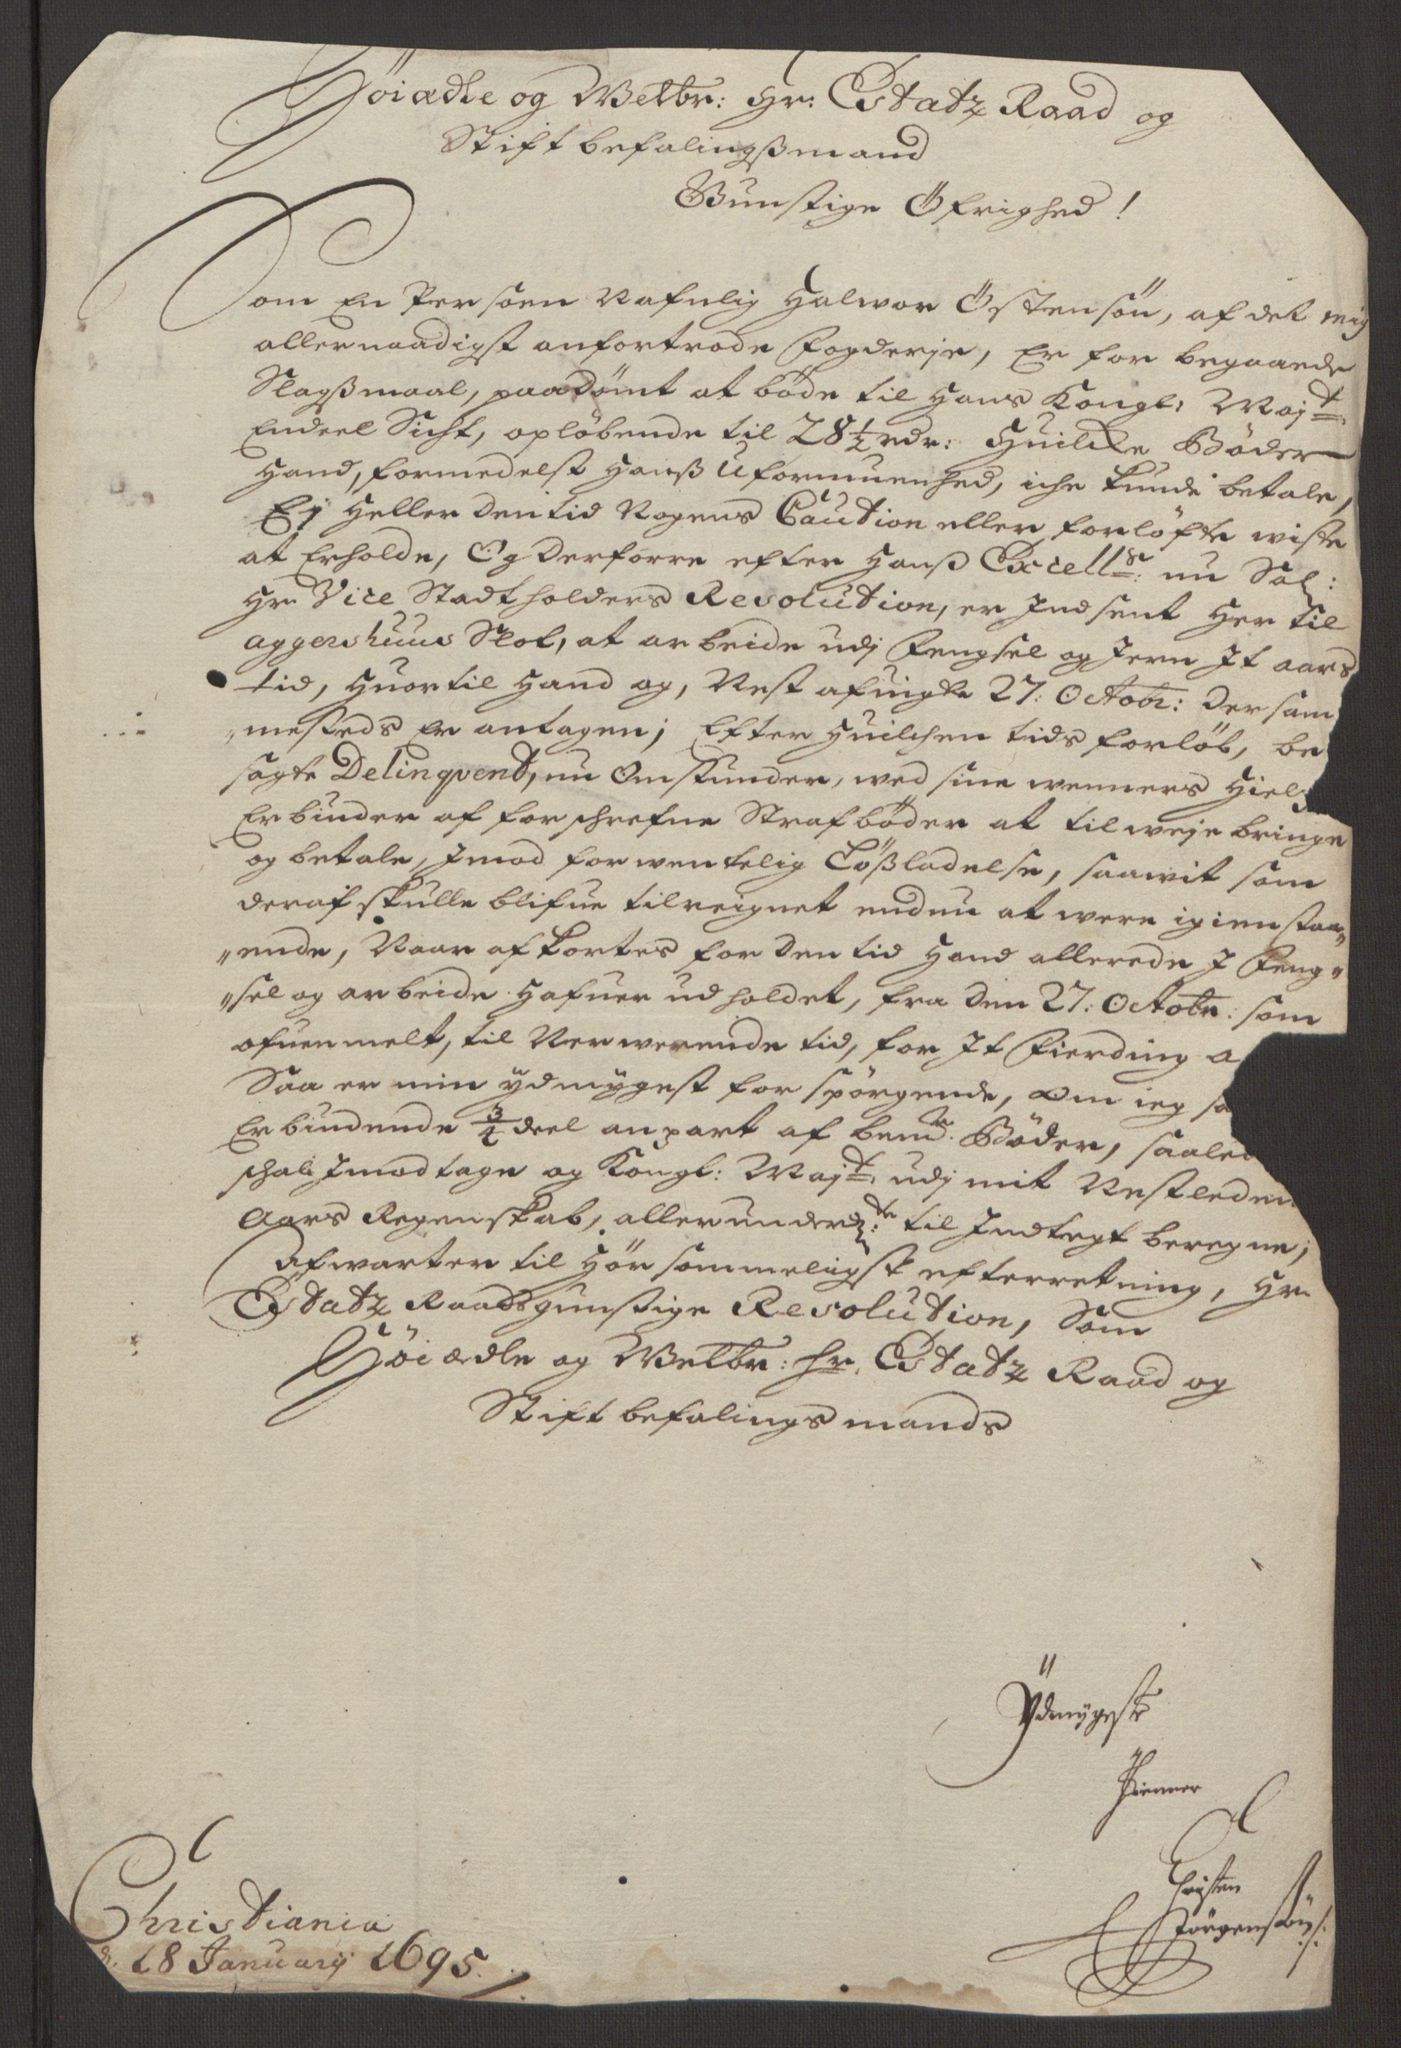 Höiædle og Welbr: Hr: Etatz Raad og
Stiftbefalingßmand
Gunstige Öfrighed!
Som En Persoen Nafnlig Halwor Östensön, af det mig
allernaadigst anfortrode Fogderje, Er for begaaede
Slagßmaal, paadömt at böde til Hans Kongl: Maj:t
Endeel Sicht, oplöbende til 28½ rdr: Huilcke Böder
Hand, formedelst Hanß Uformuenhed, iche kunde betale,
Ej Heller den tid Nogens Caution eller forlöfte wiste
at Erholde, Og derforre efter Hanß Excell:ce nu Sal:
Hr: Vice Stadtholders Resolution, er Indsent Her til
Aggershuus Slot, at arbeide udj Fengsel og Jern It aars
tid, Huortil Hand og, Nest afuigte 27: Octobr: der sam
mesteds Er antagen; Efter Huilchen tids forlöb, be
sagte Delinqvent, nu Omstunder, wed sine wenners Hielp
Erbinder af forschrefne Strafböder at tilweje bringe
og betale, Imod forwentelig Lößladelse, saawit som
deraf skulle blifue tilreignet endnu at were igienstaa-
ende, Naar afkortes for den tid Hand allerede I Feng-
sel og arbeide Hafuer udholdet, fra den 27: Octobr: som
ofuenmelt, til Nerwerende tid, for It Fierding a
Saa er min ydmygest forspörgende, om ieg sa
Erbindende ¾ deel anpart af bem:te Böder, saaled
schal Imodtage og Kongl: Maj:t udj mit Nestleden
Aars Regenskab, allerund:te til Indtegt beregne;
Afwarter til Hörsommeligst efterretning, Hr:
Etatz Raads gunstige Resolution, Som
Höiædle og Welbr: Hr. Etatz Raad og
Stiftbefalings mands
Ydmygste
Thienner
Christen
Jörgensön
Christiania
d. 18 January 1695.